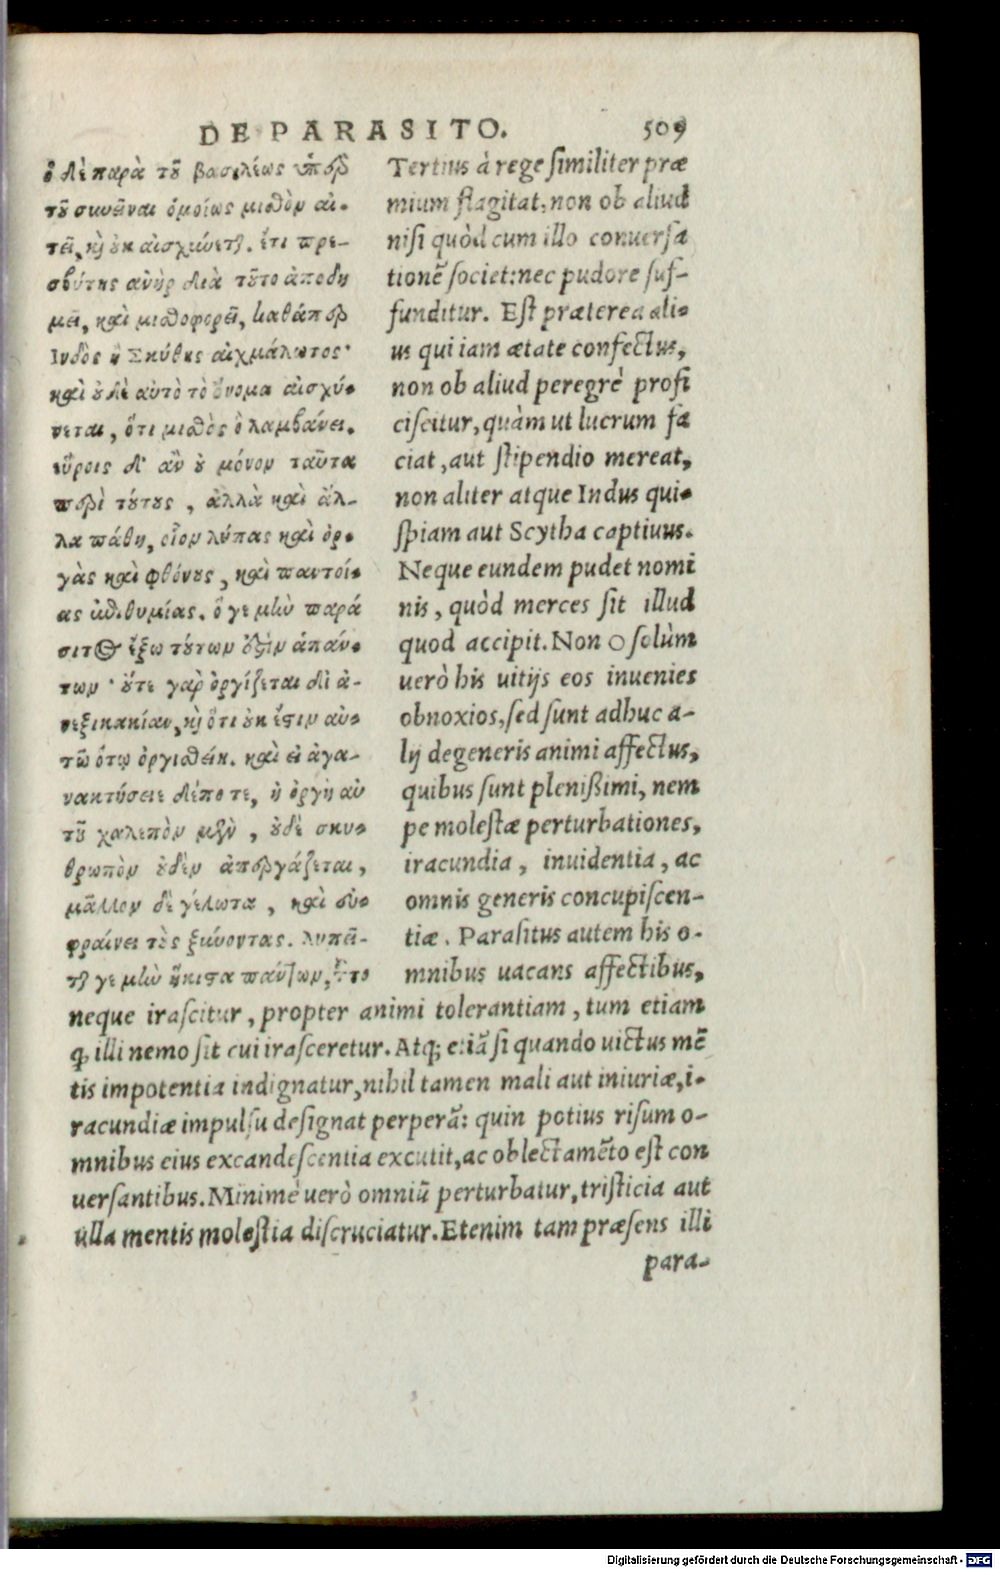 DE PARASITO. 509
ὁ δὲ παρὰ τοῦ βασιλέως ὑπὲρ
τοῦ συνεῖναι ὁμοίως μισθὸν αἰ-
τεῖ, καὶ οὐκ αἰσχύνεται. ἔτι πρε-
σβύτης ἀνὴρ διὰ τοῦτο ἀποδη
μεῖ, καὶ μισθοφορεῖ, καθάπερ
Ἰνδὸς ἢ Σκύθης αἰχμάλωτος·
καὶ οὐδὲ αὐτὸ τὸ ὄνομα αἰσχύ-
νεται, ὅτι μισθὸς ὃ λαμβάνει.
εὕροις δ' ἂν οὐ μόνον ταῦτα
περὶ τούτους, ἀλλὰ καὶ ἄλ-
λα πάθη, οἷον λύπας καὶ ὀρ-
γὰς καὶ φθόνους, καὶ παντοί-
ας ἐπιθυμίας. ὅ γε μὴν παρά
σιτος ἔξω τούτων ἐστὶν ἁπάν-
των· οὔτε γὰρ ὀργίζεται δι' ἀ-
νεξικακίαν, καὶ ὅτι οὐκ ἔστιν αὐ-
τῷ ὅτῳ ὀργισθείη. καὶ εἰ ἀγα-
νακτήσειε δέποτε, ἡ ὀργὴ αὐ
τοῦ χαλεπὸν μὲν, οὐδὲ σκυ-
θρωπὸν οὐδὲν ἀπεργάζεται,
μᾶλλον δὲ γέλωτα, καὶ εὐ-
φραίνει τοὺς ξυνόντας. λυπεῖ-
ται γε μὴν ἥκιστα πάντων, τοῦτο
Tertius à rege similiter præ
mium flagitat, non ob aliud
nisi quòd cum illo conuersa
tionẽ societ: nec pudore suf-
funditur. Est præterea ali-
us qui iam ætate confectus,
non ob aliud peregrè profi
ciscitur, quàm ut lucrum fa
ciat, aut stipendio mereat,
non aliter atque Indus qui-
spiam aut Scytha captiuus.
Neque eundem pudet nomi
nis, quòd merces sit illud
quod accipit. Non ○ solùm
uerò his uitijs eos inuenies
obnoxios, sed sunt adhuc a-
lij degeneris animi affectus,
quibus sunt plenißimi, nem
pe molestæ perturbationes,
iracundia, inuidentia, ac
omnis generis concupiscen-
tiæ. Parasitus autem his o-
mnibus uacans affectibus,
neque irascitur, propter animi tolerantiam, tum etiam
q; illi nemo sit cui irasceretur. Atq; etiã si quando uictus mẽ
tis impotentia indignatur, nihil tamen mali aut iniuriæ, i-
racundiæ impulsu designat perperã: quin potius risum o-
mnibus eius excandescentia excutit, ac oblectamẽto est con
uersantibus. Minimè uerò omniũ perturbatur, tristicia aut
ulla mentis molestia discruciatur. Etenim tam præsens illi
para-
Digitalisierung gefördert durch die Deutsche Forschungsgemeinschaft - DFG